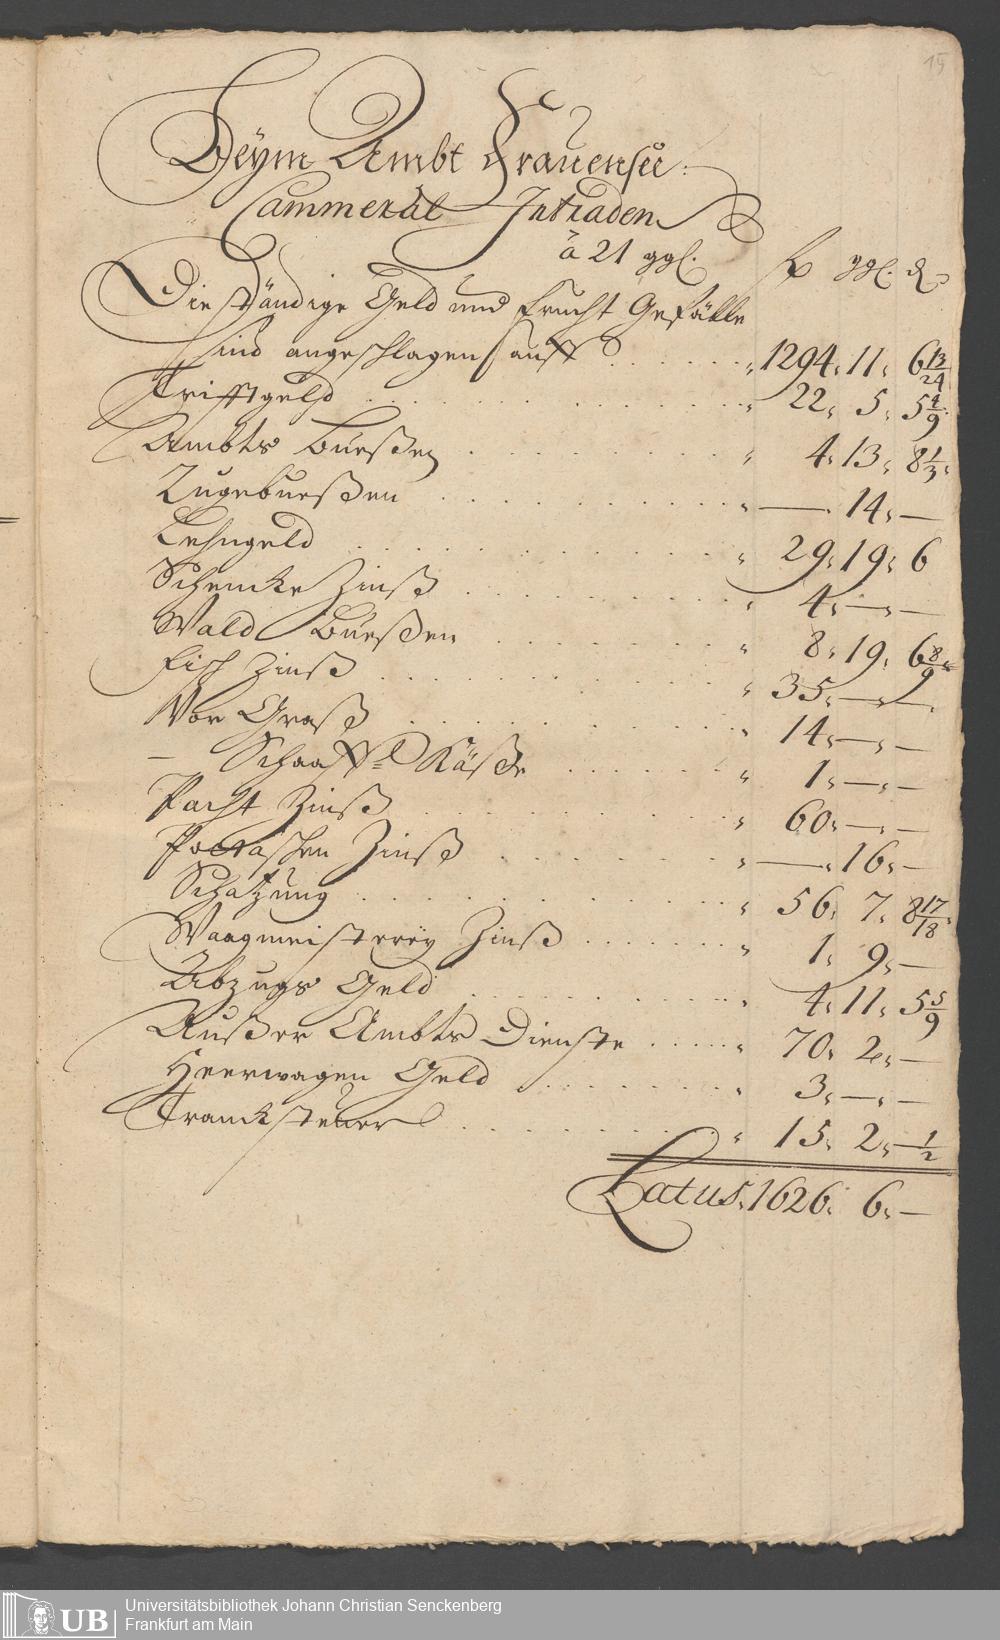 15
Beÿm Ambt Frauensee
Cammeral Intraden
à 21 ggl. ggl.
Die ständige Geld und Frucht Gefälle
sind angeschlagen auff . . . . . . 1294. 11. 6 13/24
Trifftgeld . . . . . . 22. 5. 5 4/9
Ambts Bueßen . . . . . . 4. 13. 8 1/3
Zugebueßen . . . . . . — 14. —
Lehngeld . . . . . . 29. 19. 6
Schencke Zinß . . . . . . 4. —. —
Wald Bueßen . . . . . . 8. 19. 6 8/9
Fisch Zinß . . . . . . 35. —. —
Vor Graß . . . . . . 14. —. —
— Schaaff Käße . . . . . . 1. —. —
Pacht Zinß . . . . . . 60. —. —
Pottaschen Zinß . . . . . . — 16. —
Schatzung . . . . . . 56. 7. 8 17/18
Waagmeisterey Zinß . . . . . . 1. 9. —
Abzugs Geld . . . . . . 4. 11. 5 5/9
Außer Ambts Dienste . . . . . . 70. 2. —
Heerwagen Geld . . . . . . 3. —. —
Trancksteuer . . . . . . 15. 2. — 1/2
Latus. 1626. 6. —
UB Universitätsbibliothek Johann Christian Senckenberg
Frankfurt am Main